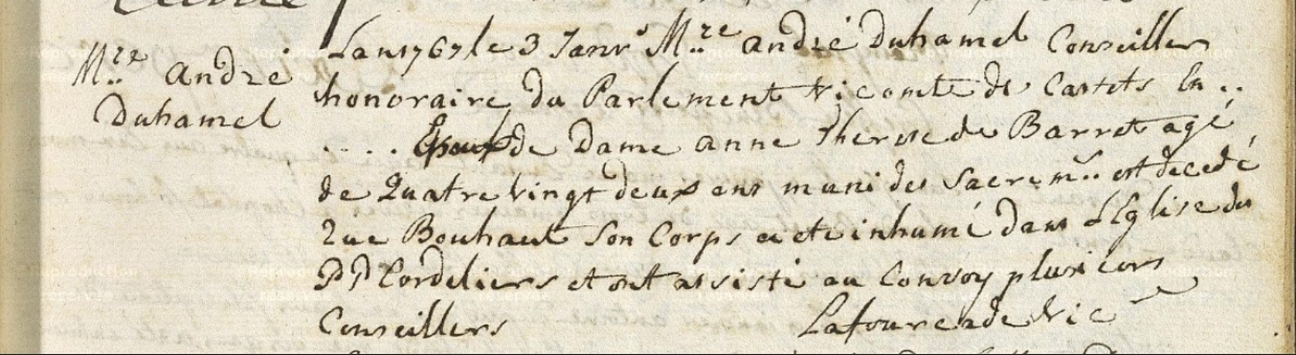 Mre andré
Duhamel
Lan 1767 le 3 Janvr Mre andré Duhamel Conseiller
honoraire du Parlement vicomte de Castets En ..
.... Epoux de Dame anne therese de Barret agé
de Quatre vingt deux ans muni des Sacremts est decedé
Rue Bouhaut Son Corps a ete inhumé dans L'Eglise du
PP Cordeliers et ont assisté au Convoy plusieurs
Conseillers Lafourcade vic